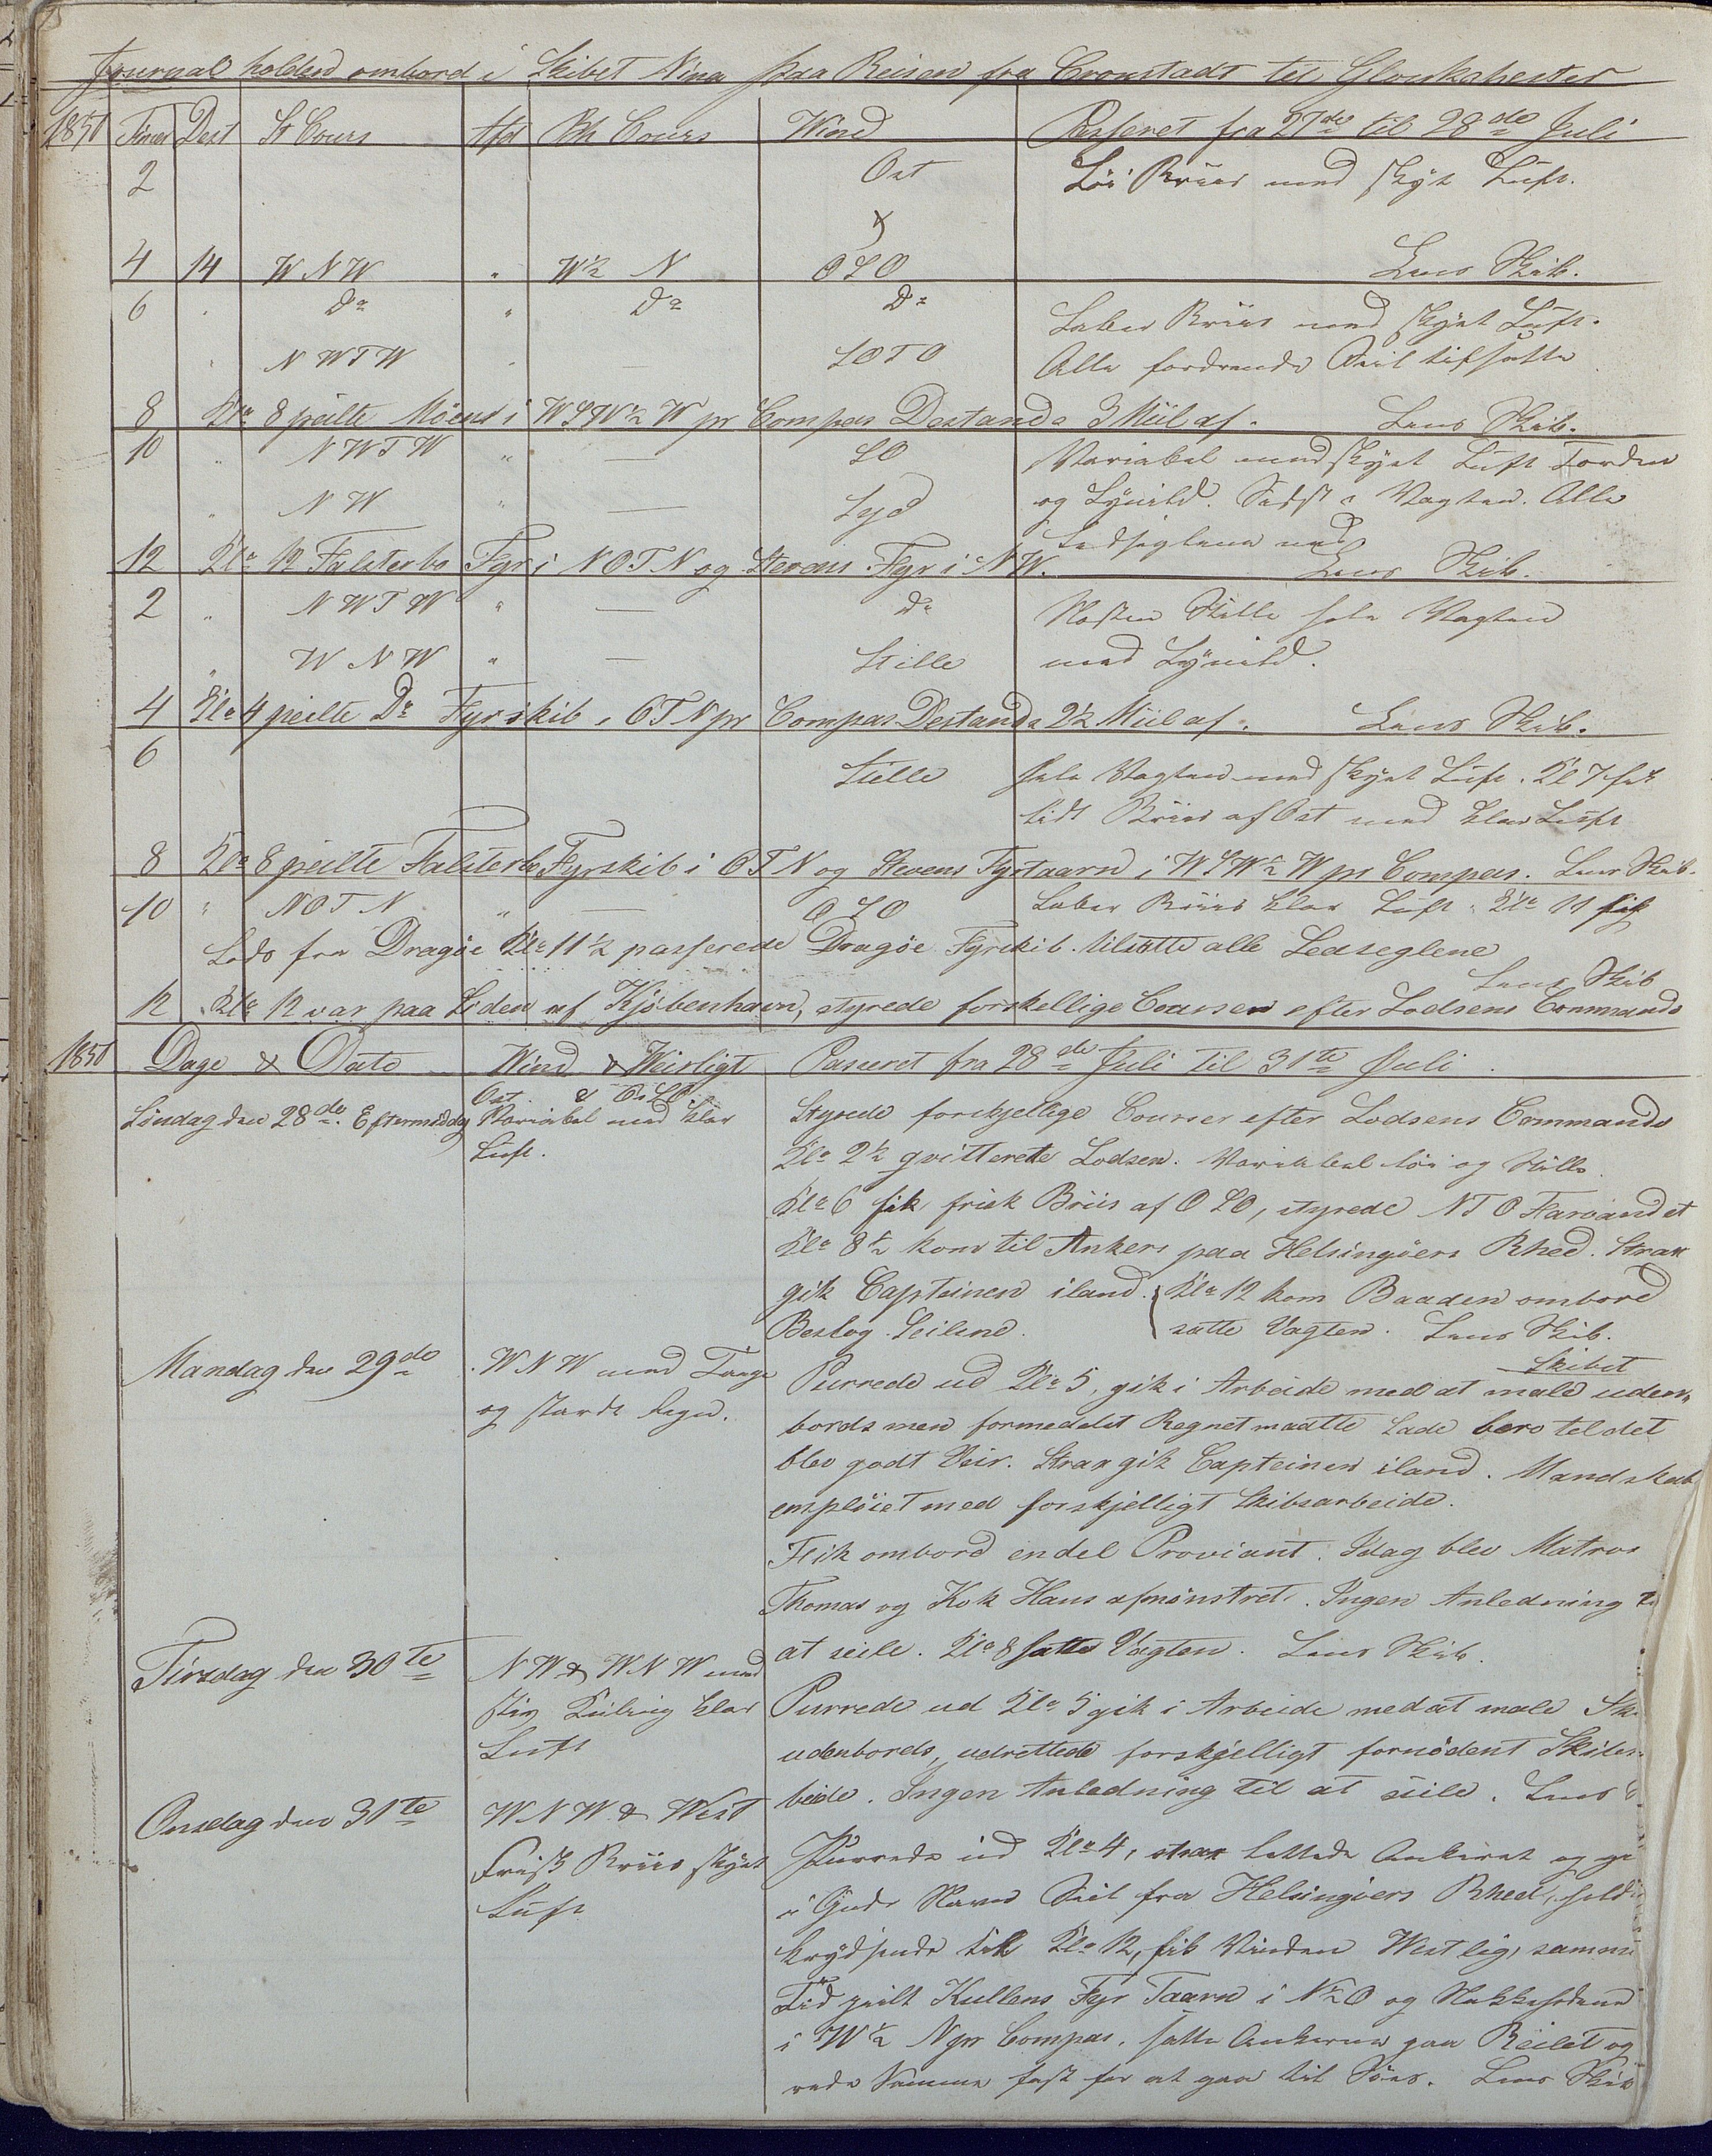 Journal holdend ombord i Skibet Nina paa Reisen fra Cronstadt til Gloukshester
1850 Timer Dest St Cours Afd Bh Cours Wind Passeret fra 27de til 28de Juli
2 Ost Löi Briis med skyt Luft.
4 14 W N W " W½ N O S O Lens Skib.
6 " Do " Do Do Laber Briis med skyet Luft.
" N W T W " — S O T O Alle fordrende Seil tilsatte
8 Klo 8 peilte Möens i W S W ½ W pr Compas Destands 3 Miil af. Lens Skib.
10 " N W T W " — S O Variabel med skyet Luft Torden
" N W " — Syd og Lynild. Sidst i Vagten. Alle
Ledseglene ned
12 Klo 12 Falsterbo Fyr i N O T N og Stevens Fyr i N W. Lens Skib.
2 " N W T W " — Do Nesten Stille hele Vagten
" W N W " — Stille med Lynild.
4 Klo 4 peilte Do Fyrskib i O T N pr Compas Destands 2½ Miil af. Lens Skib.
6 Stille hele Vagten med skyet Luft. Kl 7 fik
lidt Briis af Ost med klar Luft
8 Klo 8 peilte Falsterbo Fyrskib i O T N og Stevens Fyrtaarn i W S W ½ W pr Compas. Lens Skib.
10 " N O T N " — O S O Laber Briis klar Luft. Klo 11 fik
Lods fra Dragöe Klo 11½ passerede Dragöe Fyrskib. tilsatte alle Ledseglene
Lens Skib
12 Klo 12 var paa Siden af Kjöbenhavn, styrede forskellige Courser efter Lodsens Commando
1850 Dage & Dato Wind & Weirligt Passeret fra 28de Juli til 31te Juli
Söndag den 28de Eftermiddag Ost & OSO Styrede forskjellige Courser efter Lodsens Commando
Variabel med klar
Luft. Klo 2½ qvitterete Lodsen. Variabel löi og Stille.
Klo 6 fik frisk Briis af O S O, styrede N T O Farvandet
Klo 8½ kom til Ankers paa Helsingöers Rhed. Strax
gik Capteinen iland. Klo 12 kom Baaden ombord
Beslog Seilene. satte Vagten. Lens Skib.
Mandag den 29de W N W med Taage Purrede ud Klo 5, gik i Arbeide med at male Skibet uden,,
og stærk Regn. bords men formedelst Regnet maatte lade bero tel det
blev godt Veir. Strax gik Capteinen iland. Mandskab
emplöiet med forskjelligt Skibsarbeide.
Fik ombord endel Proviant. Idag blev Matros
Thomas og Kok Hans afmönstret. Ingen Anledning
at seile. Klo 8 satte Vagten. Lens Skib.
Tirsdag den 30te N W & W N W med Purrede ud Klo 5 gik i Arbeide med at male
stiv Kuling klar udenbords, udrettede forskjelligt fornödent
Luft beide. Ingen Anledning til at seile. Lens
Onsdag den 31te W N W & West Purrede ud Klo 4, strax lettede Ankeret og
Frisk Briis skyet i Guds Navn Seil fra Helsingöers Rhed,
Luft krydsende til Klo 12, fik Vinden Westlig, samme
Tid peilt Kullens Fyr Taarn i N½O og Nakkehoved
i W½ N pr Compas. satte Ankerne paa Reilet og
Samme fast for at gaa til Söes. Lens Skib